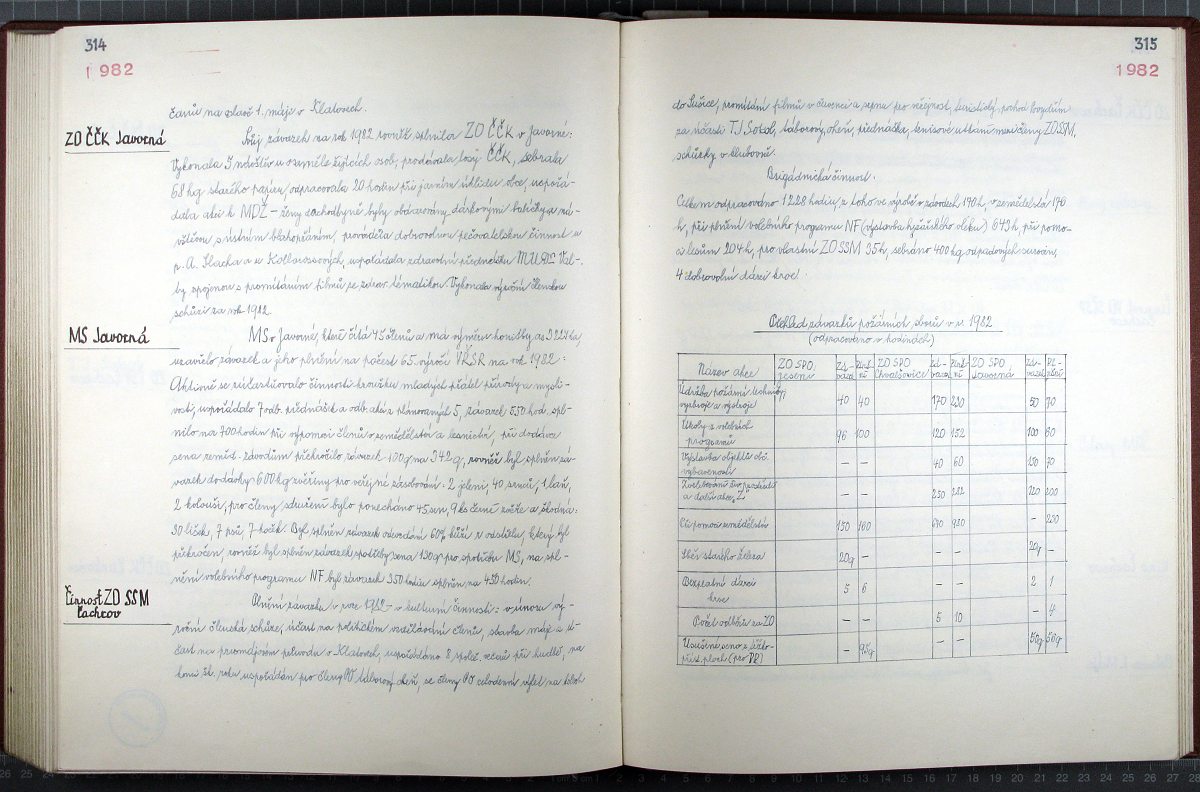 314
1982
čarů na oslavě 1. máje v Klatovech.
ZO ČČK Javorná
Svůj závazek na rok 1982 rovněž splnila ZO ČČK v Javorné:
Vykonala 3 návštěv u osaměle žijících osob, prodávala losy ČČK, sebrala
68 kg starého papíru, odpracovala 20 hodin při jarním úklidu obce, uspořá-
dala akci k MDŽ – ženy důchodkyně byly obdarovány dárkovými balíčky a ná-
vštěvou s ústním blahopřáním, prováděla dobrovolnou pečovatelskou činnost u
p. A. a u uspořádala zdravotní přednášku MUDr. Val-
by spojenou s promítáním filmů se zdrav. tématikou. Vykonala výroční členskou
schůzi za rok 1982.
MS Javorná
MS v Javorné, které čítá 45 členů a má výměru honitby as 3221 ha
uzavřelo závazek a jeho plnění na počest 65. výročí VŘSR na rok 1982:
Aktivně se zúčastňovalo činnosti kroužku mladých přátel přírody a mysli-
vosti, uspořádalo 7 odb. přednášek a odb. akcí z plánovaných 5, závazek 550 hod. spl-
nilo na 700 hodin při výpomoci členů v zemědělství a lesnictví, při dodávce
sena zeměd. závodům překročilo závazek 100q na 342 q, rovněž byl splněn zá-
vazek dodávky 600 kg zvěřiny pro veřejné zásobování: 2 jeleni, 40 srnců, 1 laň,
2 kolouši, pro členy sdružení bylo ponecháno 45 srn, 9 ks černé zvěře a škodná:
30 lišek, 7 psů, 7 koček. Byl splněn závazek odevzdání 60% kůží z odstřelu, který byl
překročen, rovněž byl splněn závazek spotřeby sena 130q pro spotřebu MS, na spl-
nění volebního programu NF byl závazek 350 hodin splněn na 450 hodin.
Činnost ZO SSM
Čachrov
Plnění závazku v roce 1982 – v kulturní činnosti: v únoru vý-
roční členská schůze, účast na politickém vzdělávání členů, stavba máje a ú-
čast na prvomájovém průvodu v Klatovech, uspořádáno 8 společ. večerů při hudbě, na
konci šk. roku uspořádán pro členy PO táborový oheň, se členy PO celodenní výlet na kolech
315
1982
do Sušice, promítání filmů v červenci a srpnu pro veřejnost, turistický pochod
za účasti TJ Sokol, táborový oheň, přednáška, tenisové utkání mezi členy ZO SSM,
schůzky v klubovně.
Brigádnická činnost.
Celkem odpracováno 1228 hodin, z toho ve výrobě v závodech 140 h, v zemědělství 190
h, při plnění volebního programu NF (výstavba lyžařského vleku) 649 h, při pomo-
ci lesům 204 h, pro vlastní ZO SSM 35 h, sebráno 400 kg odpadových surovin,
4 dobrovolní dárci krve.
Přehled závazků požárních sborů v r. 1982
(odpracováno v hodinách)
Název akce ZO SPO Zá-vazek ZO SPO Chvalšovice zá-vazek ZO SPO Javorná zá-vazek
Údržba požární techniky
výzbroje a výstroje 40 40 170 230 50 70
Úkoly z volebních
programů 96 100 120 152 100 60
Výstavba objektů obč.
vybavenosti – – 40 60 130 70
Zvelebování živ. prostředí
a další akce „Z“ – – 250 282 120 200
Čís. pomoc zemědělství 150 160 640 920 – 220
Sběr starého železa 20q – – 20q –
Bezplatní dárci
krve 5 6 – – 2 1
Počet odběrů za ZO – – 5 10 – 4
Usušené seno z těžko-
příst. ploch (pro ) – – – 50q 56q